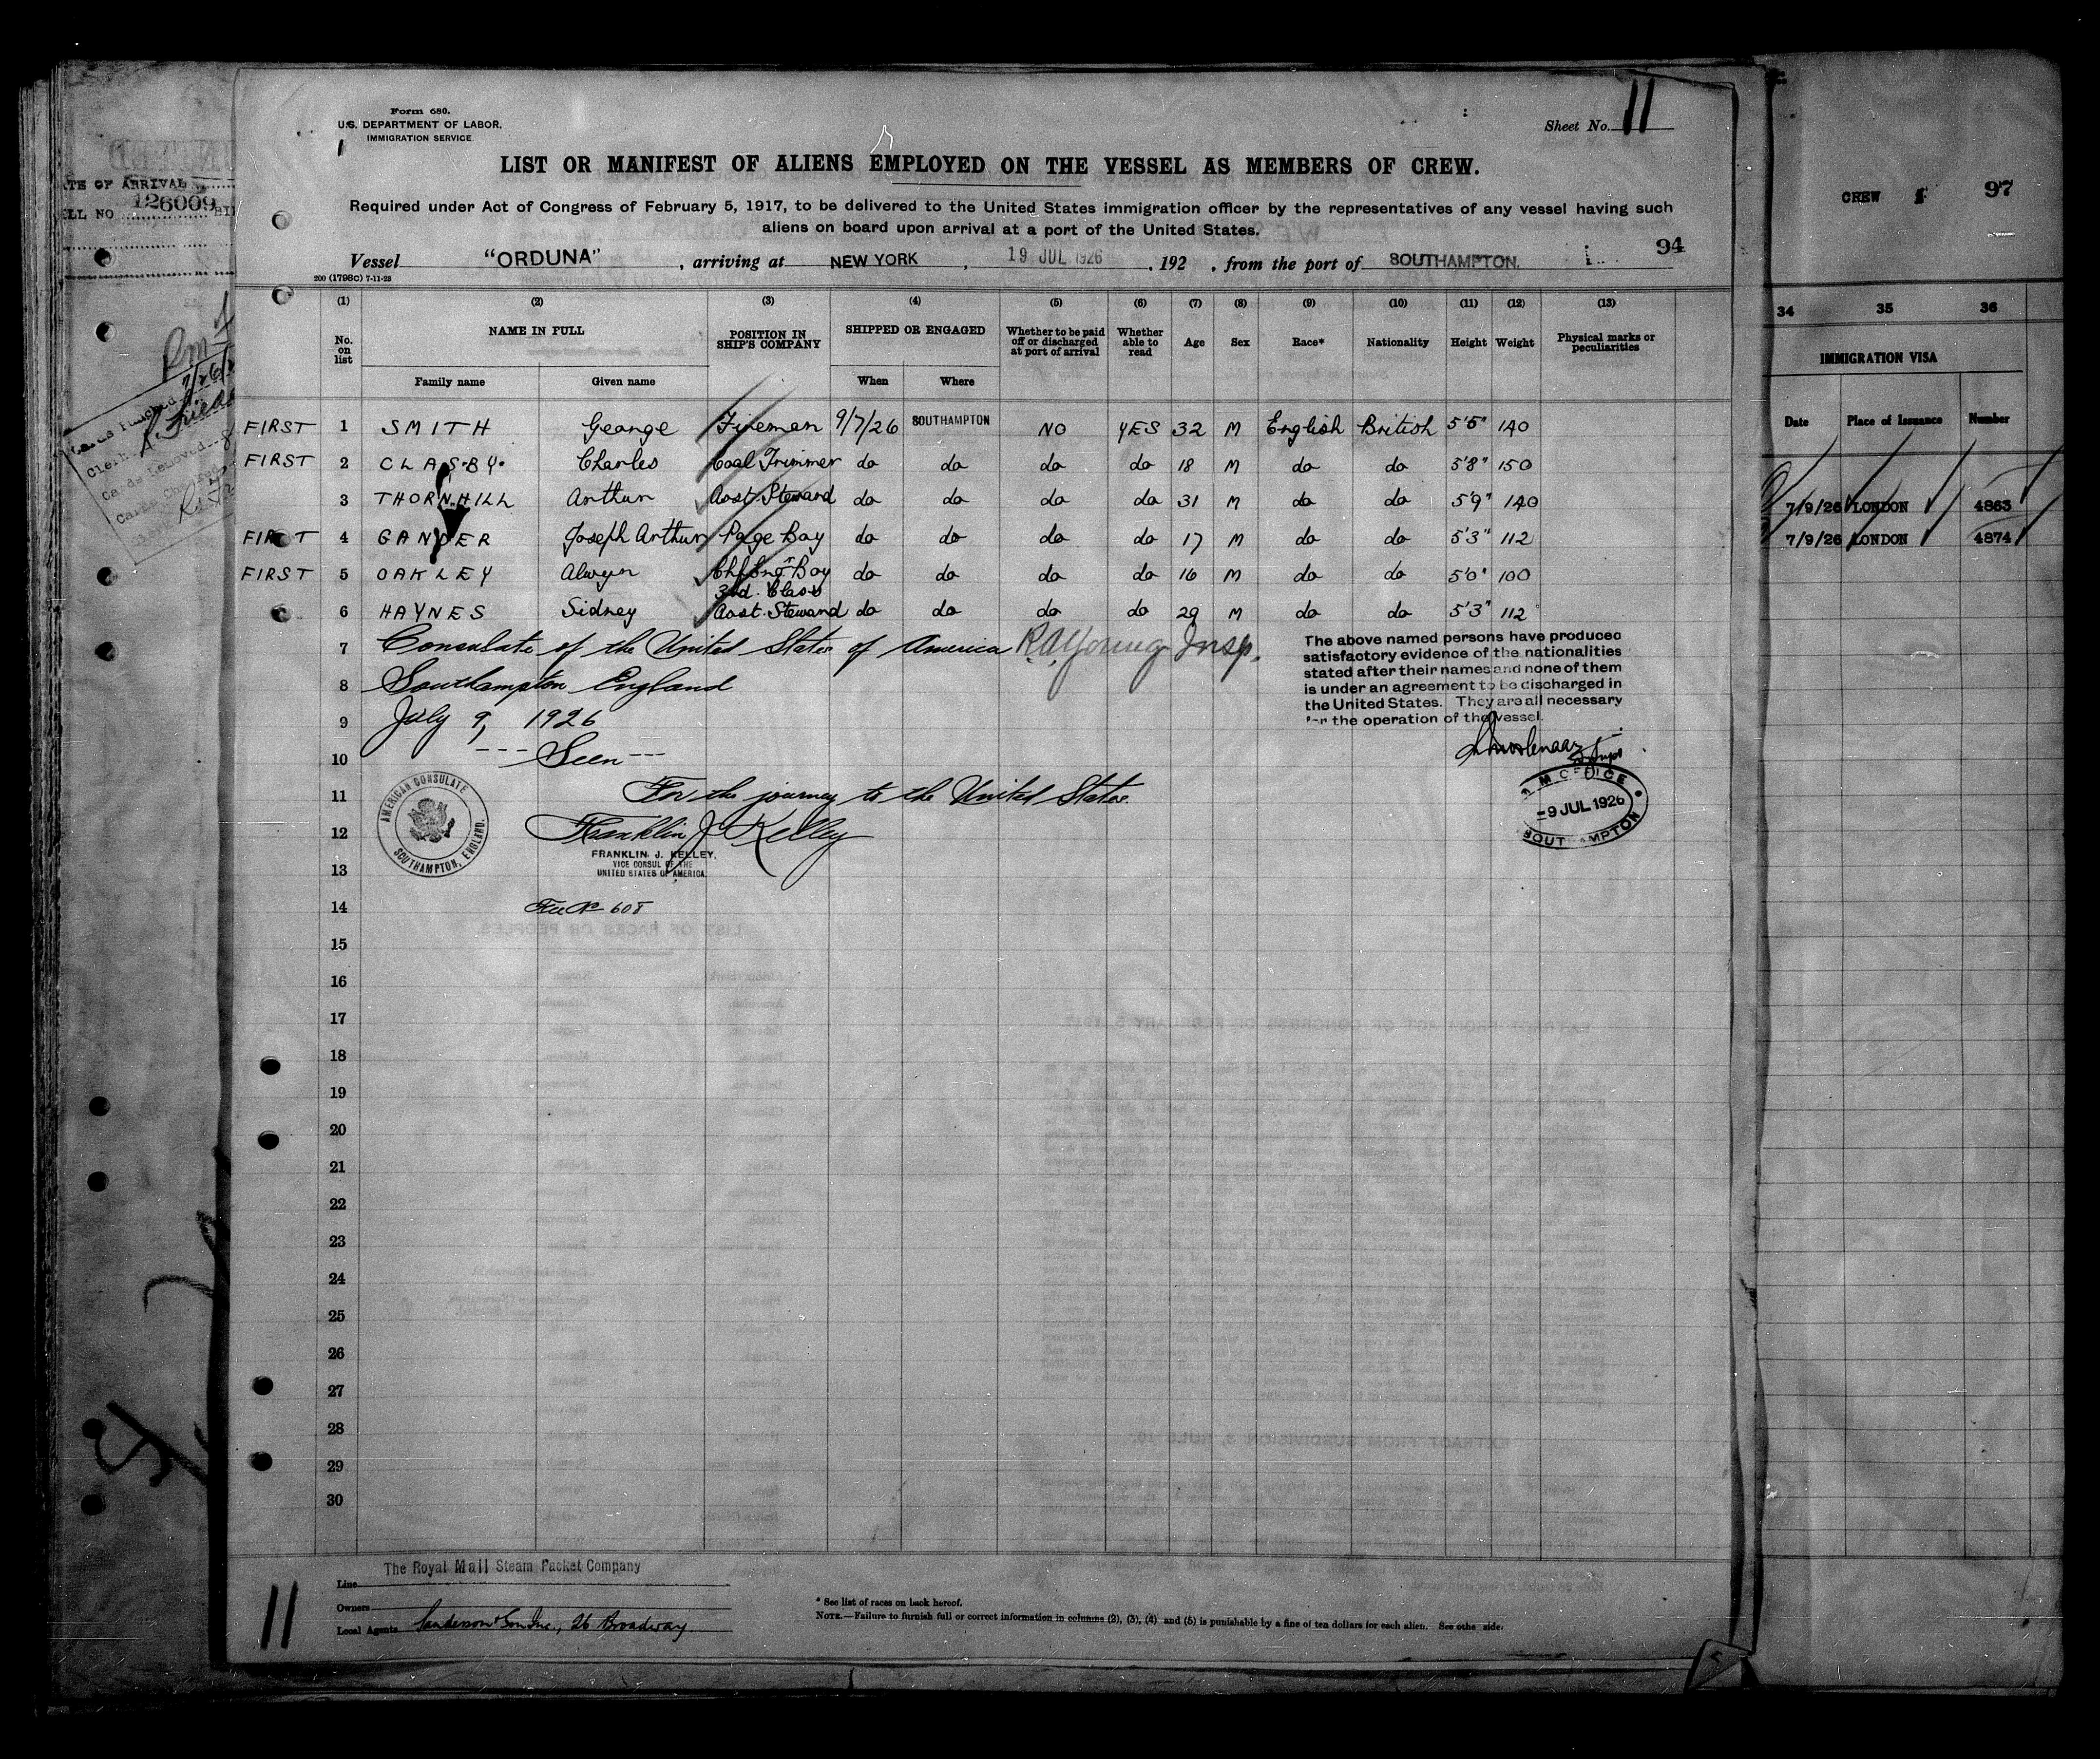 Form 680.
U.S. DEPARTMENT OF LABOR.
IMMIGRATION SERVICE
Sheet No. 11
LIST OR MANIFEST OF ALIENS EMPLOYED ON THE VESSEL AS MEMBERS OF CREW.
Required under Act of Congress of February 5, 1917, to be delivered to the United States immigration officer by the representatives of any vessel having such
aliens on board upon arrival at a port of the United States.
94
Vessel "ORDUNA", arriving at NEW YORK, 19 JUL 1926, 192 , from the port of SOUTHAMPTON.
200 (1798C) 7-11-23
(1) (2) (3) (4) (5) (6) (7) (8) (9) (10) (11) (12) (13)
No. on list NAME IN FULL POSITION IN SHIP'S COMPANY SHIPPED OR ENGAGED Whether to be paid off or discharged at port of arrival Whether able to read Age Sex Race* Nationality Height Weight Physical marks or peculiarities
Family name Given name When Where
FIRST 1 SMITH George Fireman 9/7/26 SOUTHAMPTON NO YES 32 M English British 5'5" 140
FIRST 2 CLASBY. Charles Coal Trimmer do do do do 18 M do do 5'8" 150
3 THORNHILL Arthur Asst. Steward do do do do 31 M do do 5'9" 140
FIRST 4 GANDER Joseph Arthur Page Boy do do do do 17 M do do 5'3" 112
FIRST 5 OAKLEY Alwyn Boy do do do do 16 M do do 5'0" 100
3rd. Class
6 HAYNES Sidney Asst. Steward do do do do 29 M do do 5'3" 112
7 Consulate of the United States of America R.A. Young Insp.
8 Southampton England
9 July 9, 1926
10 --- Seen ---
11 For the journey to the United States.
12 Franklin J. Kelley
FRANKLIN J. KELLEY,
VICE CONSUL OF THE
UNITED STATES OF AMERICA.
13
14 Fee No 608
15
16
17
18
19
20
21
22
23
24
25
26
27
28
29
30
The above named persons have produced
satisfactory evidence of the nationalities
stated after their names and none of them
is under an agreement to be discharged in
the United States. They are all necessary
for the operation of the vessel.
OFFICE
9 JUL 1926
SOUTHAMPTON
AMERICAN CONSULATE
SOUTHAMPTON, ENGLAND.
Line The Royal Mail Steam Packet Company
Owners
Local Agents Sanderson & Son Inc., 26 Broadway
11
* See list of races on back hereof.
NOTE.—Failure to furnish full or correct information in columns (2), (3), (4) and (5) is punishable by a fine of ten dollars for each alien. See other side.
ATE OF ARRIVAL
126009
CREW 97
34 35 36
IMMIGRATION VISA
Date Place of Issuance Number
7/9/26 LONDON 4863
7/9/26 LONDON 4874